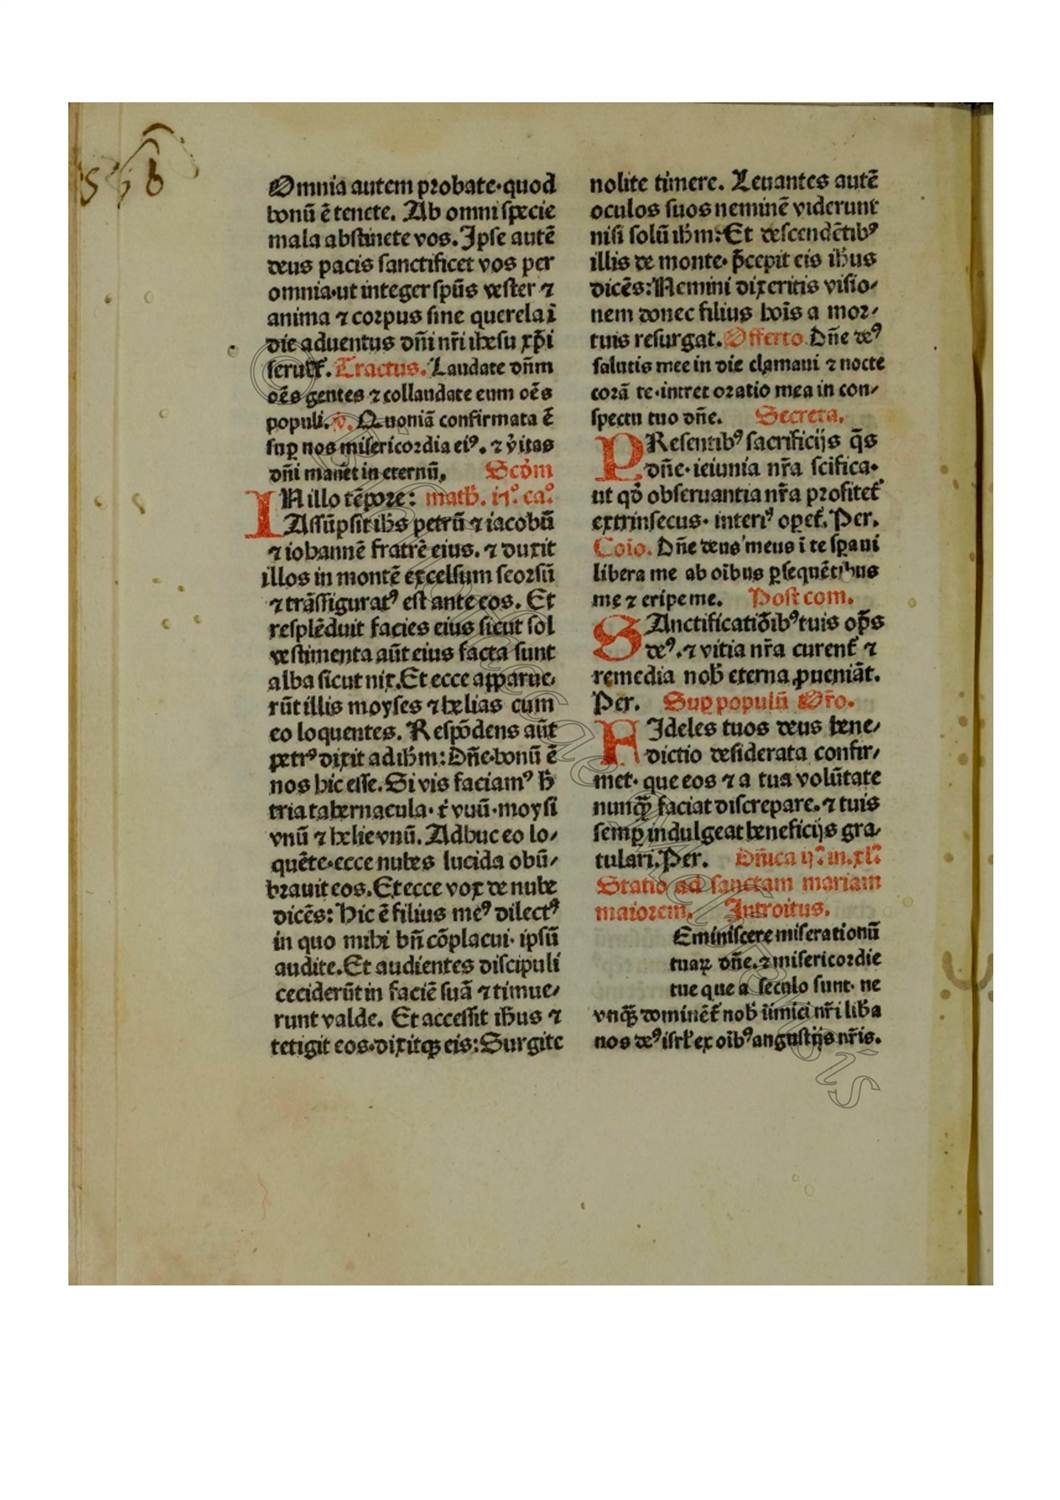 Omnia autem probate·quod
bonū ē tenete. Ab omni specie
mala abstinete vos. Ipse autē
deus pacis sanctificet vos per
omnia·ut integer spūs vester ⁊
anima ⁊ corpus sine querela ī
die aduentus dñi nr̄i ihesu xp̄i
seruet᷑. Tractus. Laudate dñm
oēs gentes ⁊ collaudate eum oēs
populi. v̄. Quoniā confirmata ē
suꝑ nos misericordia eiꝰ. ⁊ v̓itas
dñi manet in eternū. Scd̓m
IN illo tēpore: math̄. xvij.º ca.º
Assūpsit ih̄s petrū ⁊ iacobū
⁊ iohannē fratrē eius. ⁊ duxit
illos in montē excelsum seorsū
⁊ trāsfiguratꝰ est ante eos. Et
resplēduit facies eius sicut sol
vestimenta aūt eius facta sunt
alba sicut nix. Et ecce apparue/
rūt illis moyses ⁊ helias cum
eo loquentes. Respōdens aūt
petrꝰ dixit ad ih̄m: Dñe·bonū ē
nos hic esse. Si vis faciamꝰ h̄
tria tabernacula· t᷑ vnū·moysi
vnū ⁊ helie vnū. Adhuc eo lo/
quēte·ecce nubes lucida obū/
brauit eos. Et ecce vox de nube
dicēs: Hic ē filius meꝰ dilectꝰ
in quo mihi bñ cōplacui· ipsū
audite. Et audientes discipuli
ceciderūt in faciē suā ⁊ timue/
runt valde. Et accessit ih̄us ⁊
tetigit eos·dixitqꝫ eis: Surgite
nolite timere. Leuantes autē
oculos suos neminē viderunt
nisi solū ih̄m: Et descendētibꝰ
illis de monte· p̄cepit eis ih̄us
dicēs: Nemini dixeritis visio/
nem donec filius hoīs a mor/
tuis resurgat. Offerto. Dñe deꝰ
salutis mee in die clamaui ⁊ nocte
corā te·intret oratio mea in con/
spectu tuo dñe. Secreta.
PResentibꝰ sacrificijs q̄s
dñe· ieiunia nr̄a scifica·
ut qd̓ obseruantia nr̄a profitet᷑
extrinsecus· interiꝰ opet᷑. Per.
Coīo. Dñe deus meus ī te speraui
libera me ab oībus ꝑsequētibus
me ⁊ eripe me. Post com.
SAnctificatiōibꝰ tuis op̄s
deꝰ. ⁊ vitia nr̄a curent᷑ ⁊
remedia nob̄ eterna ꝓueniāt.
Per. Suꝑ populū Or̄o.
FIdeles tuos deus bene/
dictio desiderata confir/
met· que eos ⁊ a tua volūtate
nunqꝫ faciat discrepare. ⁊ tuis
semꝑ indulgeat beneficijs gra/
tulari. Per. Dn̄ica ij.ª in.xl.ª
Statio ad sanctam mariam
maiorem. Introitus.
Eminiscere miserationū
tuaꝝ dñe. ⁊ misericordie
tue que a seculo sunt· ne
vnqꝫ dominēt᷑ nob̄ inimici nr̄i lib̓a
nos deꝰ isrl̓ ex oībꝰ angustijs nr̄is.